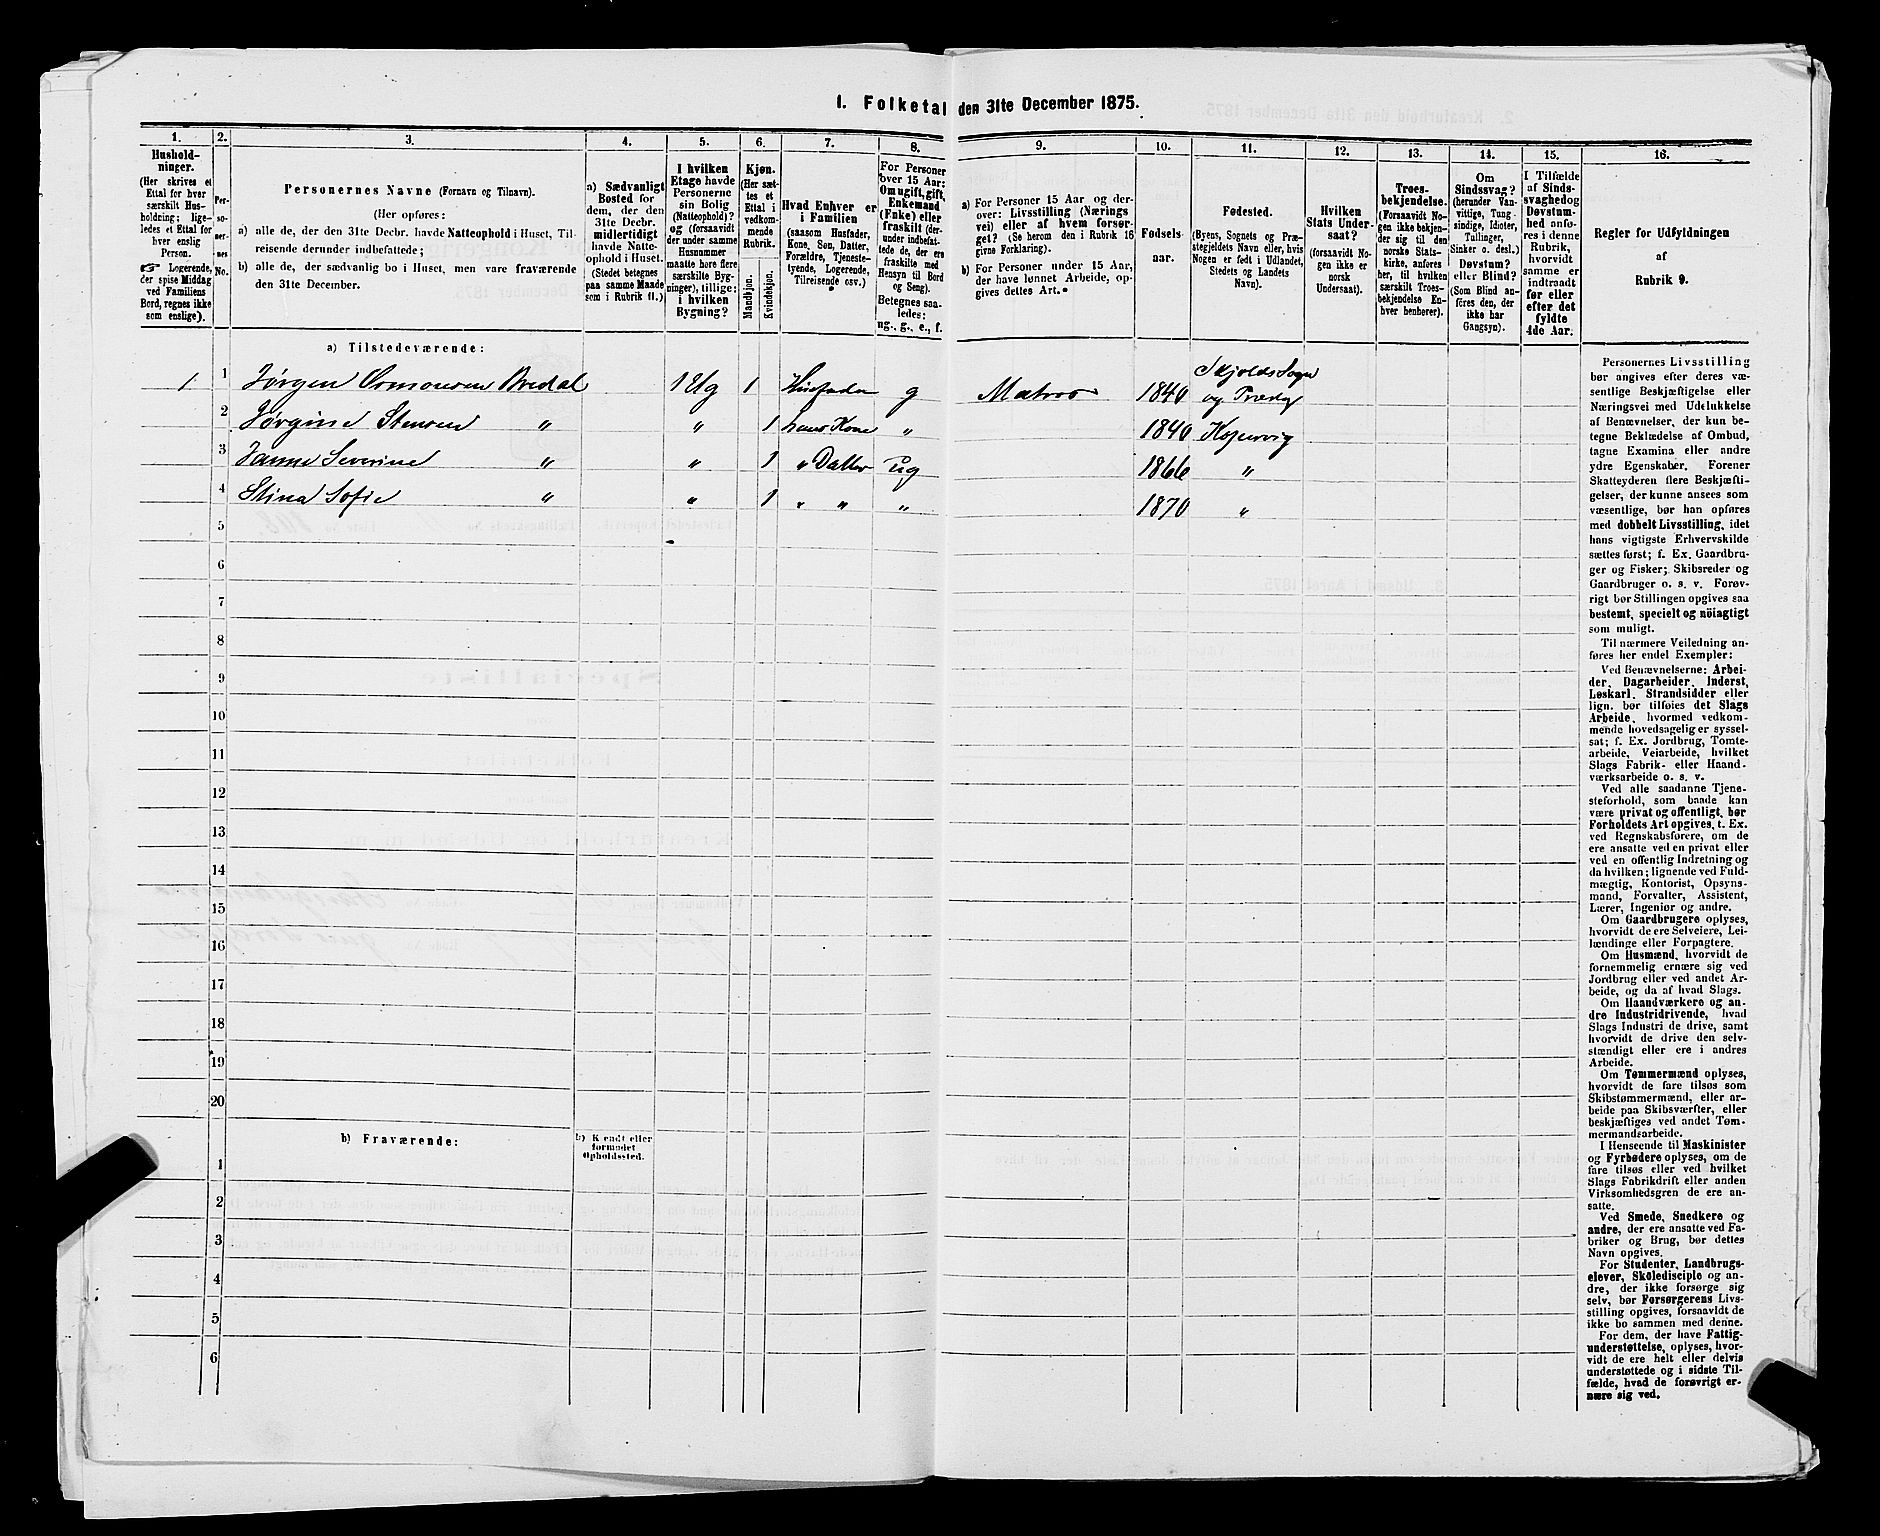 1. Folketal den 31te December 1875.
1. 2. 3. 4. 5. 6. 7. 8. 9. 10. 11. 12. 13. 14. 15. 16.
Hushold-
ninger.
(Her skrives et
Ettal for hver
særskilt Hus-
holdning; lige-
ledes et Ettal for
hver enslig
Person.
☞ Logerende,
der spise Middag
ved Familiens
Bord, regnes ikke
som enslige).
Per-
so-
ner-
nes
No.
Personernes Navne (Fornavn og Tilnavn).
(Her opføres:
a) alle de, der den 31te Decbr. havde Natteophold i Huset, Til-
reisende derunder indbefattede;
b) alle de, der sædvanlig bo i Huset, men vare fraværende
den 31te December.
a) Sædvanligt
Bosted for
dem, der den
31te Decbr.
midlertidigt
havde Natte-
ophold i Huset.
(Stedet betegnes
paa samme Maade
som i Rubrik 11.)
I hvilken
Etage havde
Personerne
sin Bolig
(Natteophold)?
og (forsaavidt
der under samme
Husnummer
maatte høre flere
særskilte Byg-
ninger), tillige:
i hvilken
Bygning?
Kjøn.
(Her sæt-
tes et
Ettal i
vedkom-
mende
Rubrik.
Mandkjøn.
Kvindekjøn.
Hvad Enhver er
i Familien
(saasom Husfader,
Kone, Søn, Datter,
Forældre, Tjeneste-
tyende, Logerende,
Tilreisende osv.)
For Personer
over 15 Aar:
Om ugift, gift,
Enkemand
(Enke) eller
fraskilt (der-
under indbefat-
tede de, der ere
fraskilte med
Hensyn til Bord
og Seng).
Betegnes saa-
ledes:
ug., g., e., f.
a) For Personer 15 Aar og der-
over: Livsstilling (Nærings
vei) eller af hvem forsør-
get? (Se herom den i Rubrik 16
givne Forklaring).
b) For Personer under 15 Aar,
der have lønnet Arbeide, op-
gives dettes Art.
Fødsels-
aar.
Fødested.
(Byens, Sognets og Præ-
stegjeldets Navn eller, hvis
Nogen er født i Udlandet,
Stedets og Landets
Navn).
Hvilken
Stats Under-
saat?
(forsaavidt No-
gen ikke er
norsk
Undersaat).
Troes-
bekjendelse.
(Forsaavidt No-
gen ikke bekjen-
der sig til den
norske Stats-
kirke, anføres
her, til hvilken
særskilt Troes-
bekjendelse En-
hver henhører).
Om
Sindssvag?
(herunder Van-
vittige, Tung-
sindige, Idioter,
Tullinger,
Sinker o. desl.)
Døvstum?
eller Blind?
(Som Blind an-
føres den, der
ikke har
Gangsyn).
I Tilfælde
af Sinds-
svaghed og
Døvstum-
hed anfø-
res i denne
Rubrik,
hvorvidt
samme er
indtraadt
før eller
efter det
fyldte
4de Aar.
Regler for Udfyldningen
af
Rubrik 9.
a) Tilstedeværende:
1 1 Jørgen Osmonsen Bredal 1 Etg 1 Husfader g Matros 1840 Skjolds Sogn og Præstg
2 Jørgine Stensen " " 1 hans Kone " 1840 Kopervig
3 Janne Severine " " 1 " Datter ug 1866 "
4 Stina Sofie " " 1 " " " 1870 "
5
6
7
8
9
10
11
12
13
14
15
16
17
18
19
20
b) Fraværende:
b) Kjendt eller
formodet
Opholdssted.
1
2
3
4
5
6
Personernes Livsstilling
bør angives efter deres væ-
sentlige Beskjæftigelse eller
Næringsvei med Udelukkelse
af Benævnelser, der kun be-
tegne Beklædelse af Ombud,
tagne Examina eller andre
ydre Egenskaber. Forener
Skatteyderen flere Beskjæfti-
gelser, der kunne ansees som
væsentlige, bør han opføres
med dobbelt Livsstilling, idet
hans vigtigste Erhvervskilde
sættes først; f. Ex. Gaardbru-
ger og Fisker; Skibsreder og
Gaardbruger o. s. v. Forøv-
rigt bør Stillingen opgives saa
bestemt, specielt og nöiagtigt
som muligt.
Til nærmere Veiledning an-
føres her endel Exempler:
Ved Benævnelserne: Arbei-
der, Dagarbeider, Inderst,
Løskarl, Strandsidder eller
lign. bør tilføies det Slags
Arbeide, hvormed vedkom-
mende hovedsagelig er syssel-
sat; f. Ex. Jordbrug, Tomte-
arbeide, Veiarbeide, hvilket
Slags Fabrik- eller Haand-
værksarbeide o. s. v.
Ved alle saadanne Tjene-
steforhold, som baade kan
være privat og offentligt, bør
Forholdets Art opgives, t. Ex.
ved Regnskabsførere, om de
ere ansatte ved en privat eller
ved en offentlig Indretning og
da hvilken; lignende ved Fuld-
mægtig, Kontorist, Opsyns-
mand, Forvalter, Assistent,
Lærer, Ingeniør og andre.
Om Gaardbrugere oplyses,
hvorvidt de ere Selveiere, Lei-
lændinge eller Forpagtere.
Om Husmænd, hvorvidt de
fornemmelig ernære sig ved
Jordbrug eller ved andet Ar-
beide, og da af hvad Slags.
Om Haandværkere og an-
dre Industridrivende, hvad
Slags Industri de drive, samt
hvorvidt de drive den selv-
stændigt eller ere i andres
Arbeide.
Om Tømmermænd oplyses,
hvorvidt de fare tilsøs som
Skibstømmermænd, eller ar-
beide paa Skibsværfter, eller
beskjæftiges ved andet Tøm-
mermandsarbeide.
I Henseende til Maskinister
og Fyrbødere oplyses, om de
fare tilsøs eller ved hvilket
Slags Fabrikdrift eller anden
Virksomhedsgren de ere an-
satte.
Ved Smede, Snedkere og
andre, der ere ansatte ved Fa-
briker og Brug, bør dettes
Navn opgives.
For Studenter, Landbrugs-
elever, Skoledisciple og an-
dre, der ikke forsørge sig
selv, bør Forsørgerens Livs-
stilling opgives, forsaavidt de
ikke bo sammen med denne.
For dem, der have Fattig-
understøttelse, oplyses, hvor-
vidt de ere helt eller delvis
understøttede og i sidste Til-
fælde, hvad de forøvrigt er-
nære sig ved.